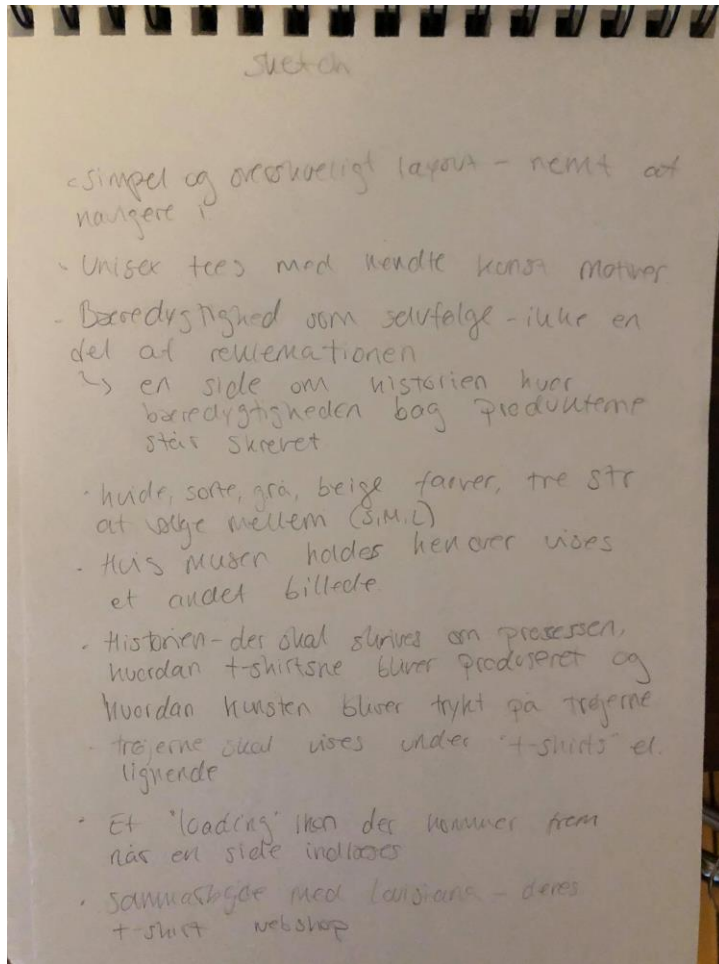 Sketch
- simpel og overskueligt layout - nemt at
navigere i
- Unisex tees med kendte kunst motiver
- Bæredygtighed som selvfølge - ikke en
del af reklemationen
↳ en side om historien hvor
bæredygtigheden bag produkterne
står skrevet
· hvide, sorte, grå, beige farver, tre str
at vælge mellem (S, M, L)
· Hvis musen holdes henover vises
et andet billede
· Historien - der skal skrives om prosessen,
hvordan t-shirtsne bliver produseret og
hvordan kunsten bliver trykt på trøjerne
- trøjerne skal vises under "t-shirts" el.
lignende
· Et "loading" ikon der kommer frem
når en side indlæses
· samarbejde med Louisiana - deres
t-shirt webshop